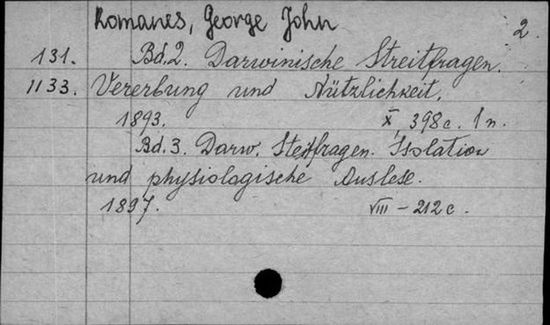 Romanes, George John
2.
131. Bd. 2. Darwinische Streitfragen.
1133. Vererbung und Nützlichkeit.
1893. X, 398 c. 1 n.
Bd. 3. Darw. Steitfragen. Isolation
und physiologische Auslese.
1897. VIII - 212 c.